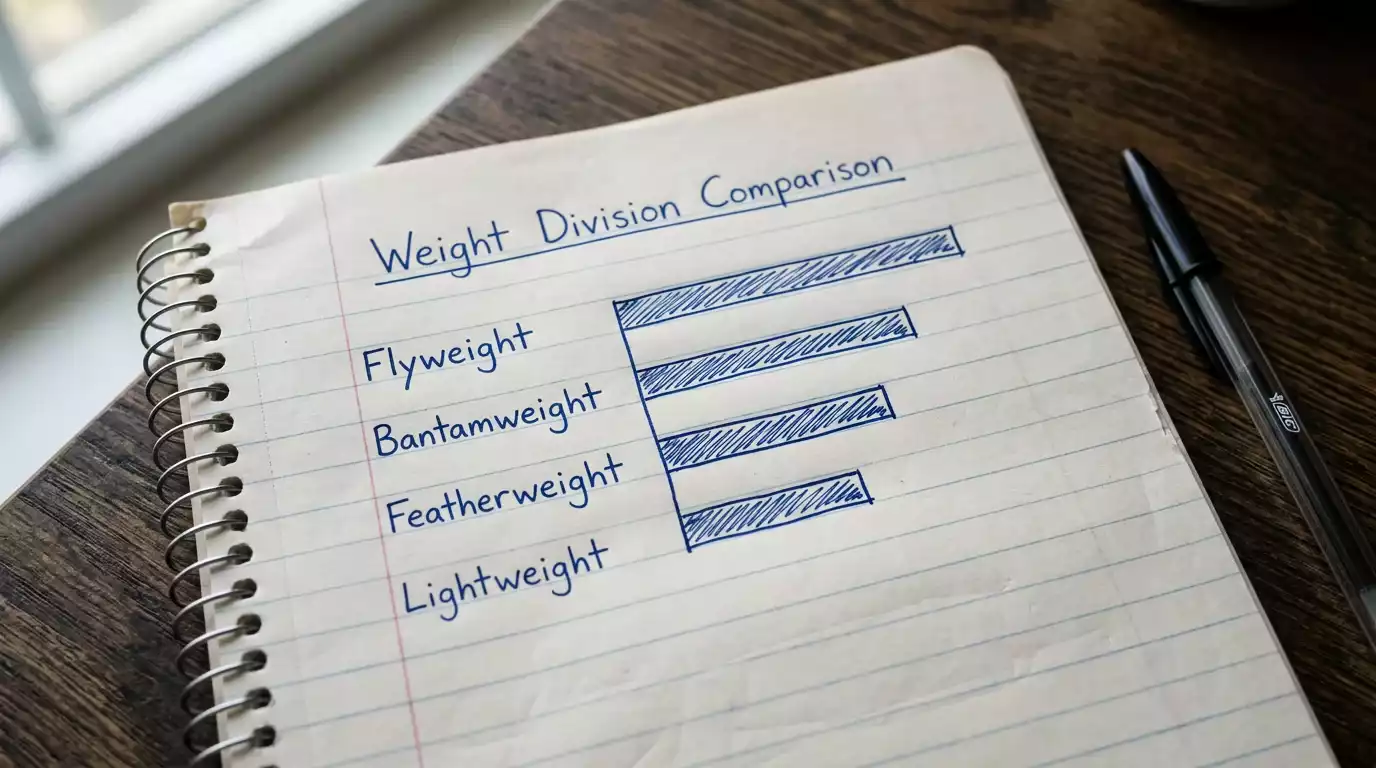 Weight Division Comparison
Flyweight
Bantamweight
Featherweight
Lightweight
BIC